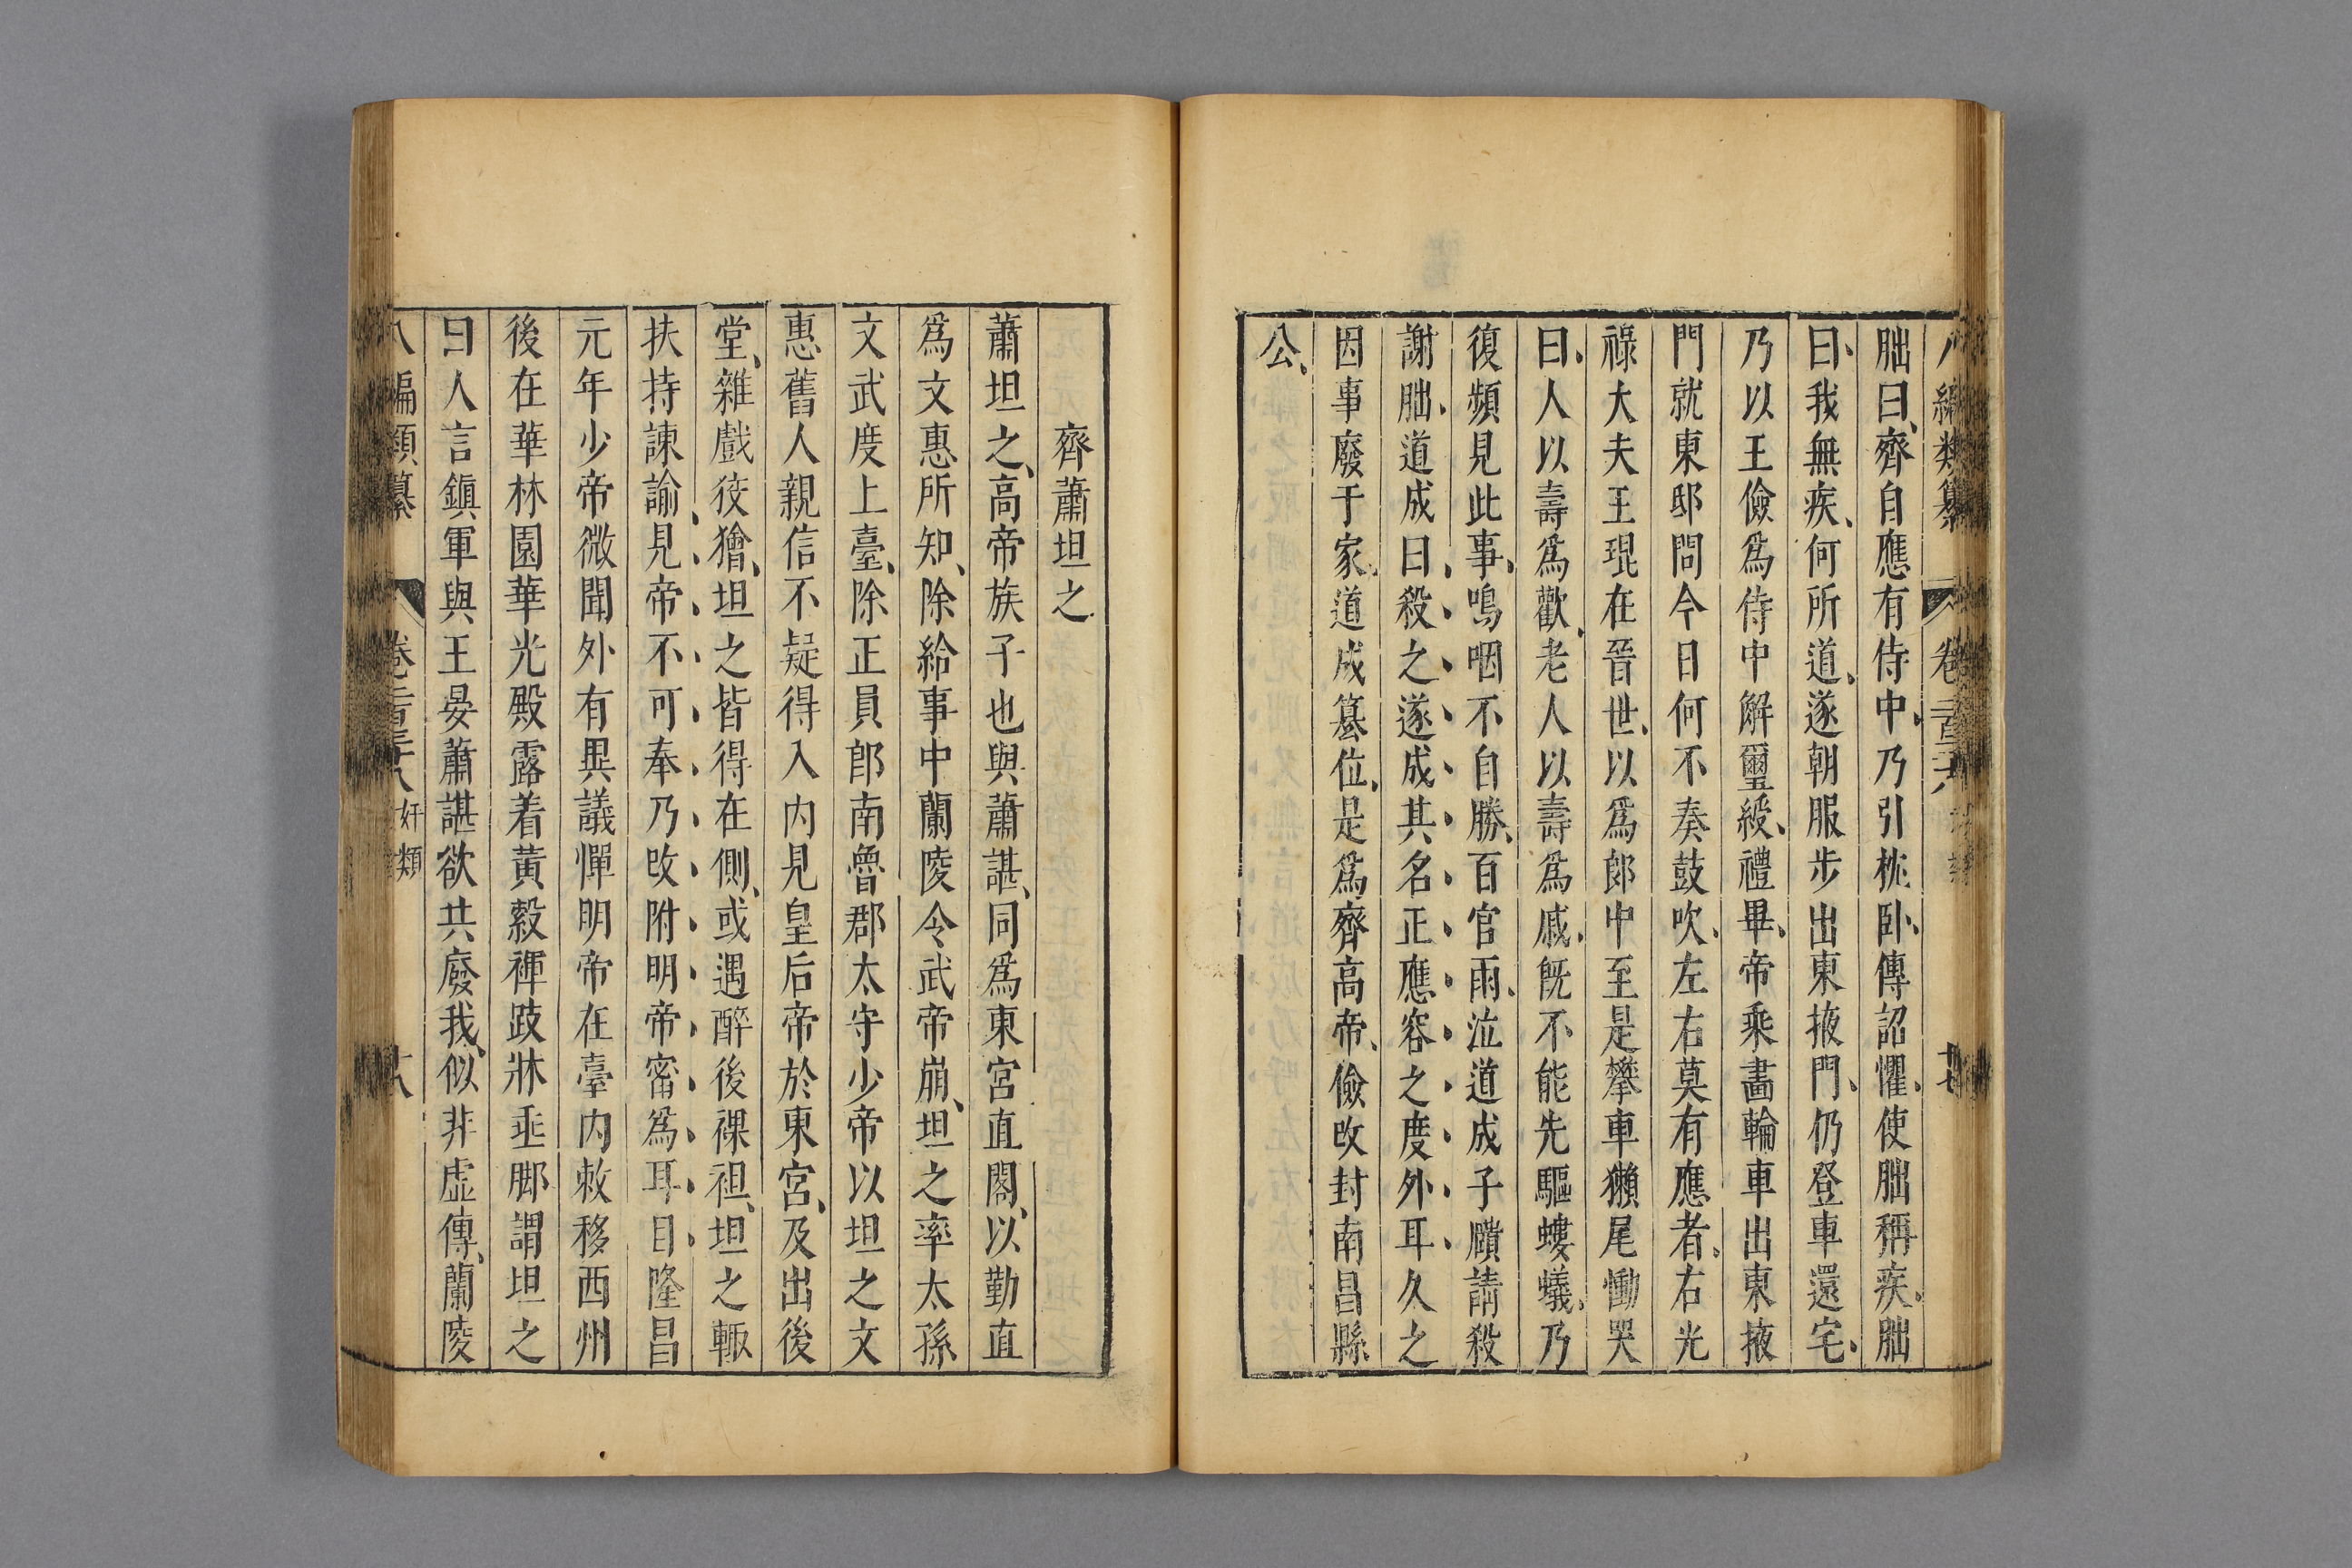 八編類纂 卷二百三十八 奸類 十七
朏曰、齊自應有侍中、乃引枕卧、傳詔懼、使朏稱疾、朏
曰、我無疾、何所道、遂朝服步出東掖門、仍登車還宅、
乃以王儉爲侍中解璽綬、禮畢、帝乘畫輪車出東掖
門就東邸問今日何不奏鼓吹、左右莫有應者、右光
祿大夫王琨在晉世、以爲郎中至是攀車獺尾慟哭
曰、人以壽爲歡、老人以壽爲戚、旣不能先驅螻蟻、乃
復頻見此事、嗚咽不自勝、百官雨泣、道成子賾請殺
謝朏、道成曰、殺之遂成其名正應容之度外耳、久之
因事廢于家、道成篡位、是爲齊高帝、儉改封南昌縣
公、
齊蕭坦之
蕭坦之、高帝族子也與蕭諶、同爲東宮直閣、以勤直
爲文惠所知、除給事中蘭陵令武帝崩、坦之率太孫
文武度上臺、除正員郎南魯郡太守少帝以坦之文
惠舊人親信不疑得入内見皇后帝於東宮、及出後
堂、雜戲狡獪、坦之皆得在側、或遇醉後裸袒、坦之輒
扶持諫諭、見帝不可奉乃改附明帝密爲耳目隆昌
元年少帝微聞外有異議憚明帝在臺内敕移西州
後在華林園華光殿露着黃縠褌跂牀垂脚謂坦之
曰人言鎭軍與王晏蕭諶欲共廢我、似非虛傳、蘭陵
八編類纂 卷二百三十八 奸類 十八